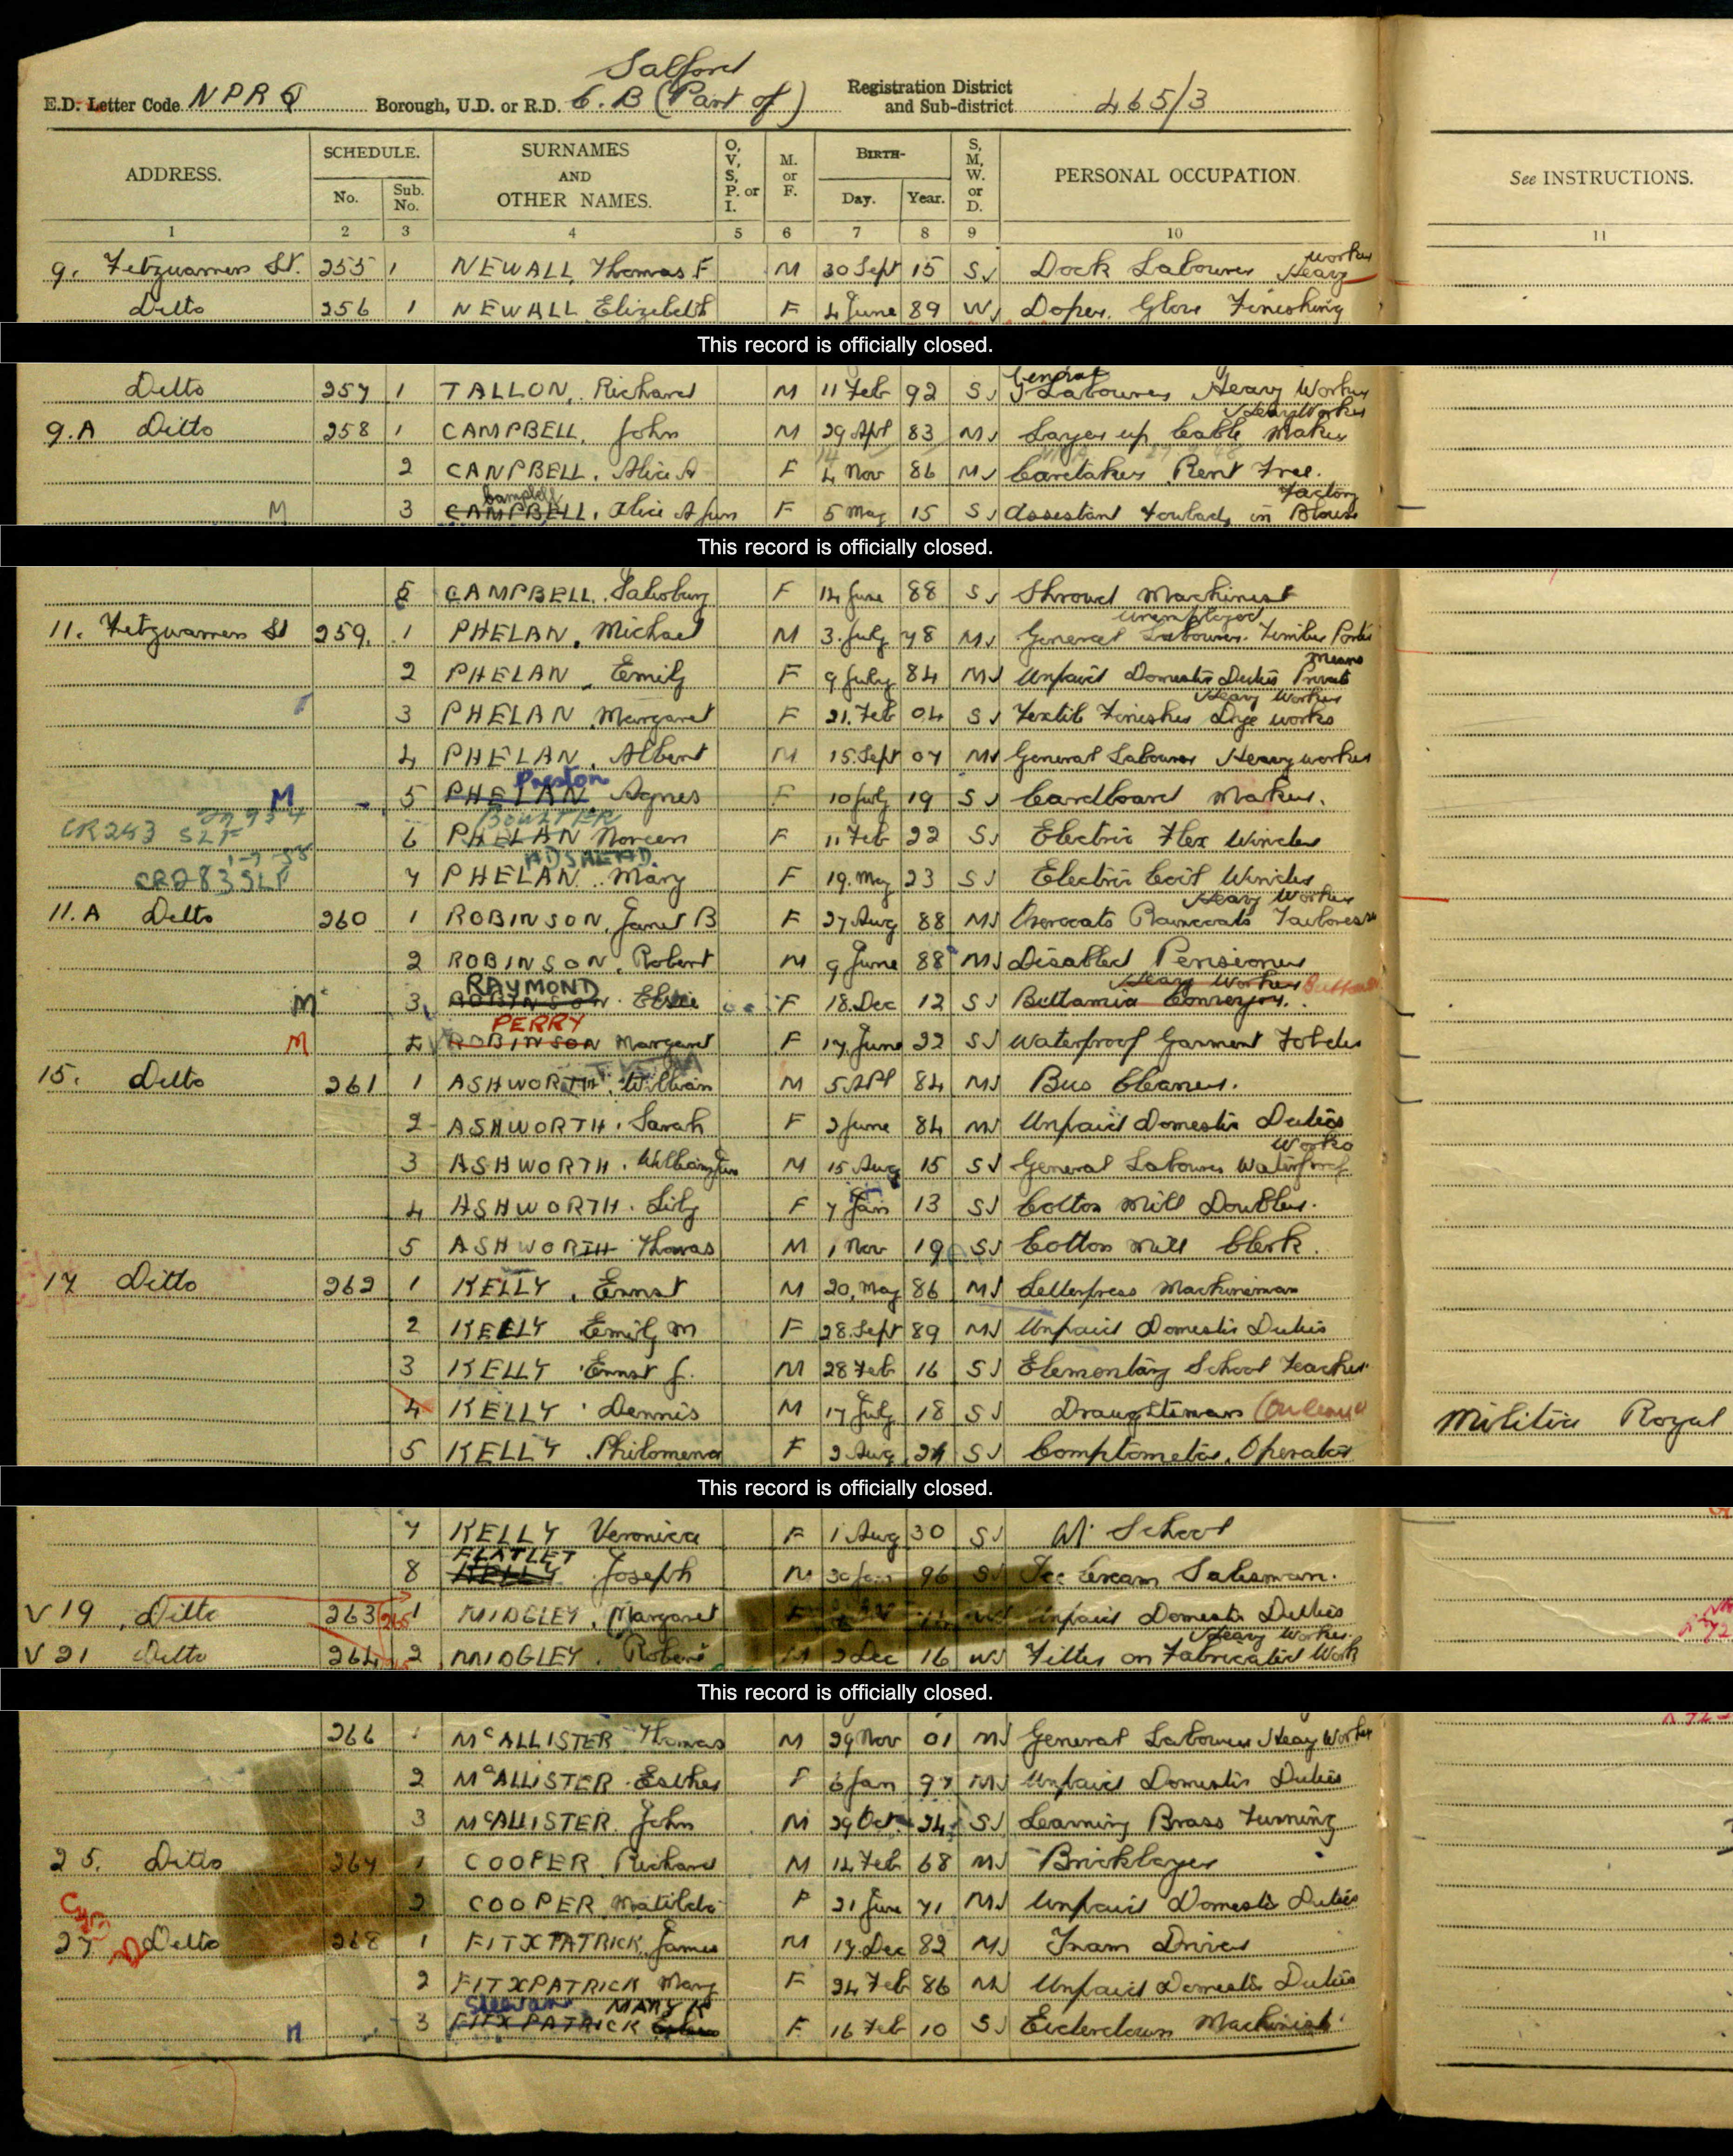 Salford
E.D. Letter Code NPRQ Borough, U.D. or R.D. C.B (Part of) Registration District and Sub-district 465/3
ADDRESS. SCHEDULE. No. Sub. No. SURNAMES AND OTHER NAMES. O, V, S, P. or I. M. or F. BIRTH- Day. Year. S, M, W. or D. PERSONAL OCCUPATION. See INSTRUCTIONS.
1 2 3 4 5 6 7 8 9 10 11
9. Fitzwarren St. 255 1 NEWALL, Thomas F M 30 Sept 15 S Dock Labourer Heavy Worker
Ditto 256 1 NEWALL Elizabeth F 4 June 89 W Doper. Glove Finishing
This record is officially closed.
Ditto 257 1 TALLON, Richard M 11 Feb 92 S General Labourer Heavy Worker
9.A Ditto 258 1 CAMPBELL, John M 29 Apl 83 M Layer up Cable Maker Heavy Worker
2 CANPBELL, Alice A F 4 Nov 86 M Caretaker Rent Free.
M 3 CAMPBELL, Campbell Alice A Jun F 5 May 15 S Assistant in Blouse Factory
This record is officially closed.
5 CAMPBELL, Salisbury F 14 June 88 S Shroud Machinist
11. Fitzwarren St 259. 1 PHELAN, Michael M 3. July 78 M General Labourer. Timber Porter unemployed
2 PHELAN, Emily F 9 July 84 M Unpaid Domestic Duties Private Means
3 PHELAN, Margaret F 21. Feb 04 S Textile Finisher Dye works Heavy Worker
4 PHELAN, Albert M 15. Sept 07 M General Labourer Heavy worker
M 5 PHELAN Preston, Agnes F 10 July 19 S Cardboard Maker.
CR283 SLF 6 PHELAN BOULTER Noreen F 11 Feb 22 S Electric Flex Winder
CR283 SLF 7 PHELAN ADSHEAD. Mary F 19. May 23 S Electric Coil Winder
11.A Ditto 260 1 ROBINSON, Janet B F 27 Aug 88 M Raincoats Tailoress Heavy Worker
2 ROBINSON, Robert M 9 June 88 M Disabled Pensioner
M 3 ROBINSON RAYMOND. Elsie F 18. Dec 12 S Heavy Worker
M 4 ROBINSON PERRY Margaret F 17. June 22 S Waterproof Garment
15. Ditto 261 1 ASHWORTH. William M 5 Apl 84 M Bus Cleaner.
2 ASHWORTH. Sarah F 2 June 84 M Unpaid Domestic Duties
3 ASHWORTH. William Jun M 15 Aug 15 S General Labourer Waterproof Works
4 ASHWORTH. Lily F 7 Jan 13 S Cotton Mill Doubler.
5 ASHWORTH Thomas M 1 Nov 19 S Cotton Mill Clerk.
17 Ditto 262 1 KELLY, Ernst M 20, May 86 M Letterpress Machineman
2 KELLY Emily M F 28. Sept 89 M Unpaid Domestic Duties
3 KELLY Ernst J. M 28 Feb 16 S Elementary School Teacher
4 KELLY Dennis M 17 July 18 S Draughtsman Militia Royal
5 KELLY. Philomena F 2 Aug 21 S Comptometer, Operator
This record is officially closed.
7 KELLY Veronica F 1 Aug 30 S At School
8 KELLY FLATLEY Joseph M 30 Jan 96 S Ice Cream Salesman.
V 19, Ditto 263 265 1 MIDGLEY, Margaret F Unpaid Domestic Duties
V 21 Ditto 264 2 MIDGLEY. Robert M 2 Dec 16 Fitter on Fabricated Work Heavy Worker.
This record is officially closed.
266 1 McALLISTER Thomas M 29 Nov 01 M General Labourer Heavy Worker
2 McALLISTER Esther F 6 Jan 97 M Unpaid Domestic Duties
3 McALLISTER. John M 29 Oct 24 S Learning Brass Turning
25. Ditto 267 1 COOPER, Richard M 14 Feb 68 M Bricklayer
2 COOPER, Matilda F 21 June 71 M Unpaid Domestic Duties
27 Ditto 268 1 FITXPATRICK, James M 17. Dec 82 M Tram Driver
2 FITXPATRICK Mary F 24 Feb 86 M Unpaid Domestic Duties
3 FITXPATRICK MARY K F 16 Feb 10 S Eiderdown Machinist.